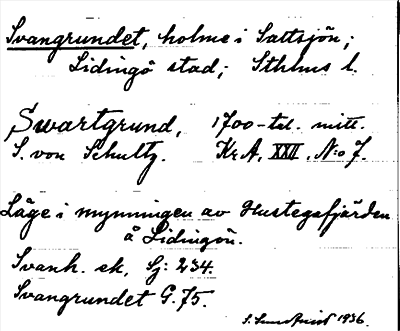 Svangrundet, holme i Saltsjön;
Lidingö stad; Sthlms l.
Swartgrund, 1700-tal. mitt.
S. von Schultz. Kr. A. XXII. No 7.
Läge i mynningen av Hustegafjärden
å Lidingön.
Svanh. ek, Sj: 234.
Svangrundet G. 75.
S. Sundqvist 1936.